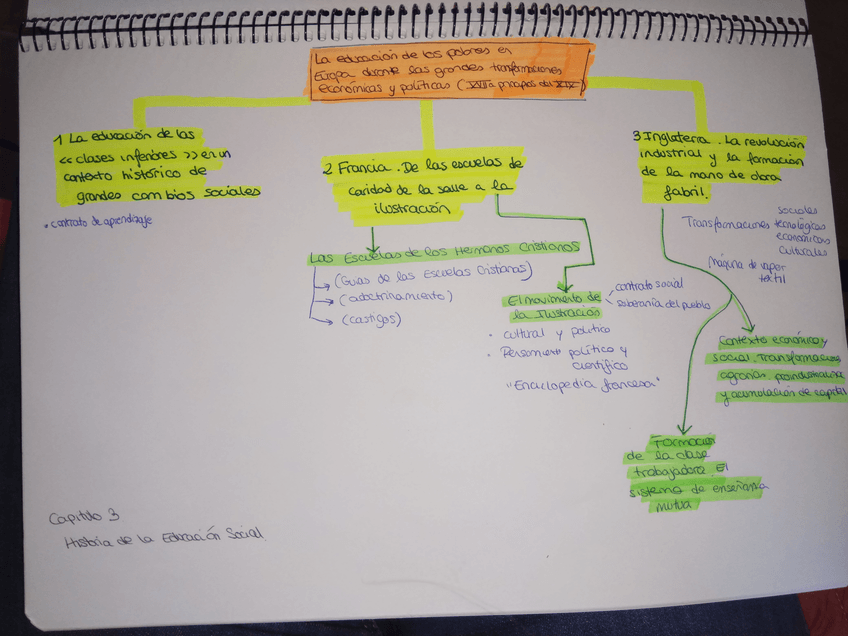 La educación de los pobres en
Europa durante las grandes transformaciones
económicas y políticas (XVII a principios del XIX)
1 La educación de las
<<clases inferiores>> en un
contexto histórico de
grandes cambios sociales
• contrato de aprendizaje
2 Francia. De las escuelas de
caridad de la Salle a la
ilustración
Las Escuelas de los Hermanos Cristianos
(Guias de las Escuelas Cristianas)
(adoctrinamiento)
(castigos)
El movimiento de
la Ilustración
contrato social
soberanía del pueblo
• cultural y político
• Pensamiento político y
científico
"Enciclopedia francesa"
3 Inglaterra. La revolución
industrial y la formación
de la mano de obra
fabril.
Transformaciones
sociales
tecnológicas
económicas
culturales
Máquina de vapor
textil
Contexto económico y
social. Transformaciones
agrarias.
y acumulación de capital
Formación
de la clase
trabajadora. El
sistema de enseñanza
mutua
Capitulo 3
Historia de la Educación Social